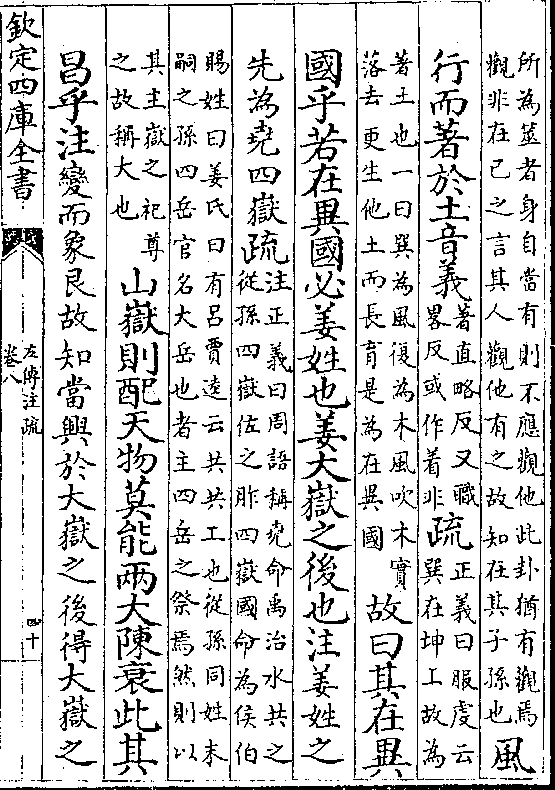 所為筮者身自當有則不應觀他此卦猶有觀焉
觀非在己之言其人觀他有之故知在其子孫也
風
行而著於土音義
著直略反又職
畧反或作着非
疏
正義曰服虔云
巽在坤上故為
著土也一曰巽為風復為木風吹木實
落去更生他土而長育是為在異國
故曰其在異
國乎若在異國必姜姓也姜大嶽之後也注姜姓之
先為堯四嶽疏
注正義曰周語稱堯命禹治水共之
從孫四嶽佐之胙四嶽國命為侯伯
賜姓曰姜氏曰有呂賈逵云共共工也從孫同姓末
嗣之孫四岳官名大岳也者主四岳之祭焉然則以
其主嶽之祀尊
之故稱大也
山嶽則配天物莫能兩大陳衰此其
昌乎注變而象艮故知當興於大嶽之後得大嶽之
欽定四庫全書
左傳注疏
卷八
四十